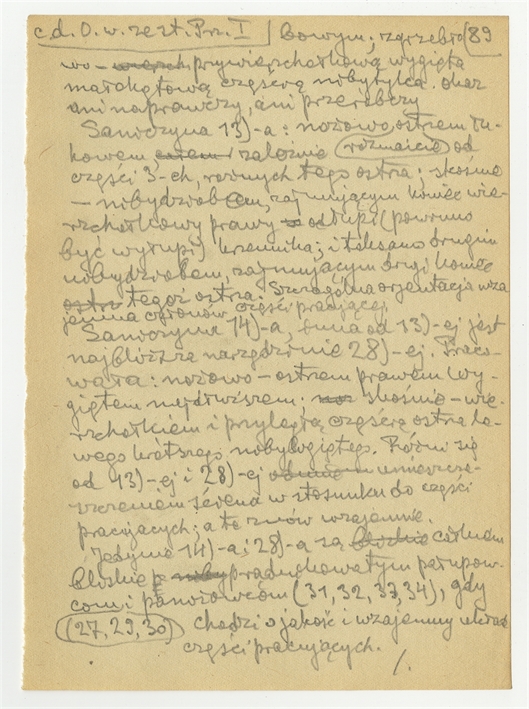 c.d. O. w. zest. Prz. I bowym; zgrzebło 89
wo – przywierzchołkową wygiętą
małokątową częścią nibytylca. oraz
ani naprawczy, ani przeróbczy
Samoczynna 13)-a: nożowo, ostrzem łu-
kowem zależnie (rozmaicie) od
części 3-ch, równych tego ostrza; skośnie
– nibydziobem, zajmującym koniec wie-
rzchołkowy prawy odłupi (powinno
być wyłupi) krzemika; i toksamo drugim
nibydziobem, zajmującym drugi koniec
ostr tegoż ostrza. Szczególna orjentacja wza
jemna członów części pracującej.
Samoczynna 14)-a, inna od 13)-ej jest
najbliższa narzędziu nie 28)-ej. Praco-
wała: nożowo – ostrzem prawem wy-
giętem najdłuższem. skośnie – wie-
rzchołkiem i przyległą częścią ostrza le-
wego krótszego nibywygiętego. Różni się
od 13)-ej i 28)-ej umieszcze-
niem śedna w stosunku do części
pracujących; a te znów wzajemnie.
Jedynie 14)-a i 28)-a są całkiem
bliskie praduchowatym półupow-
com i paniowcom (31, 32, 33, 34), gdy
(27, 29, 30) chodzi o jakość i wzajemny układ
części pracujących. /.